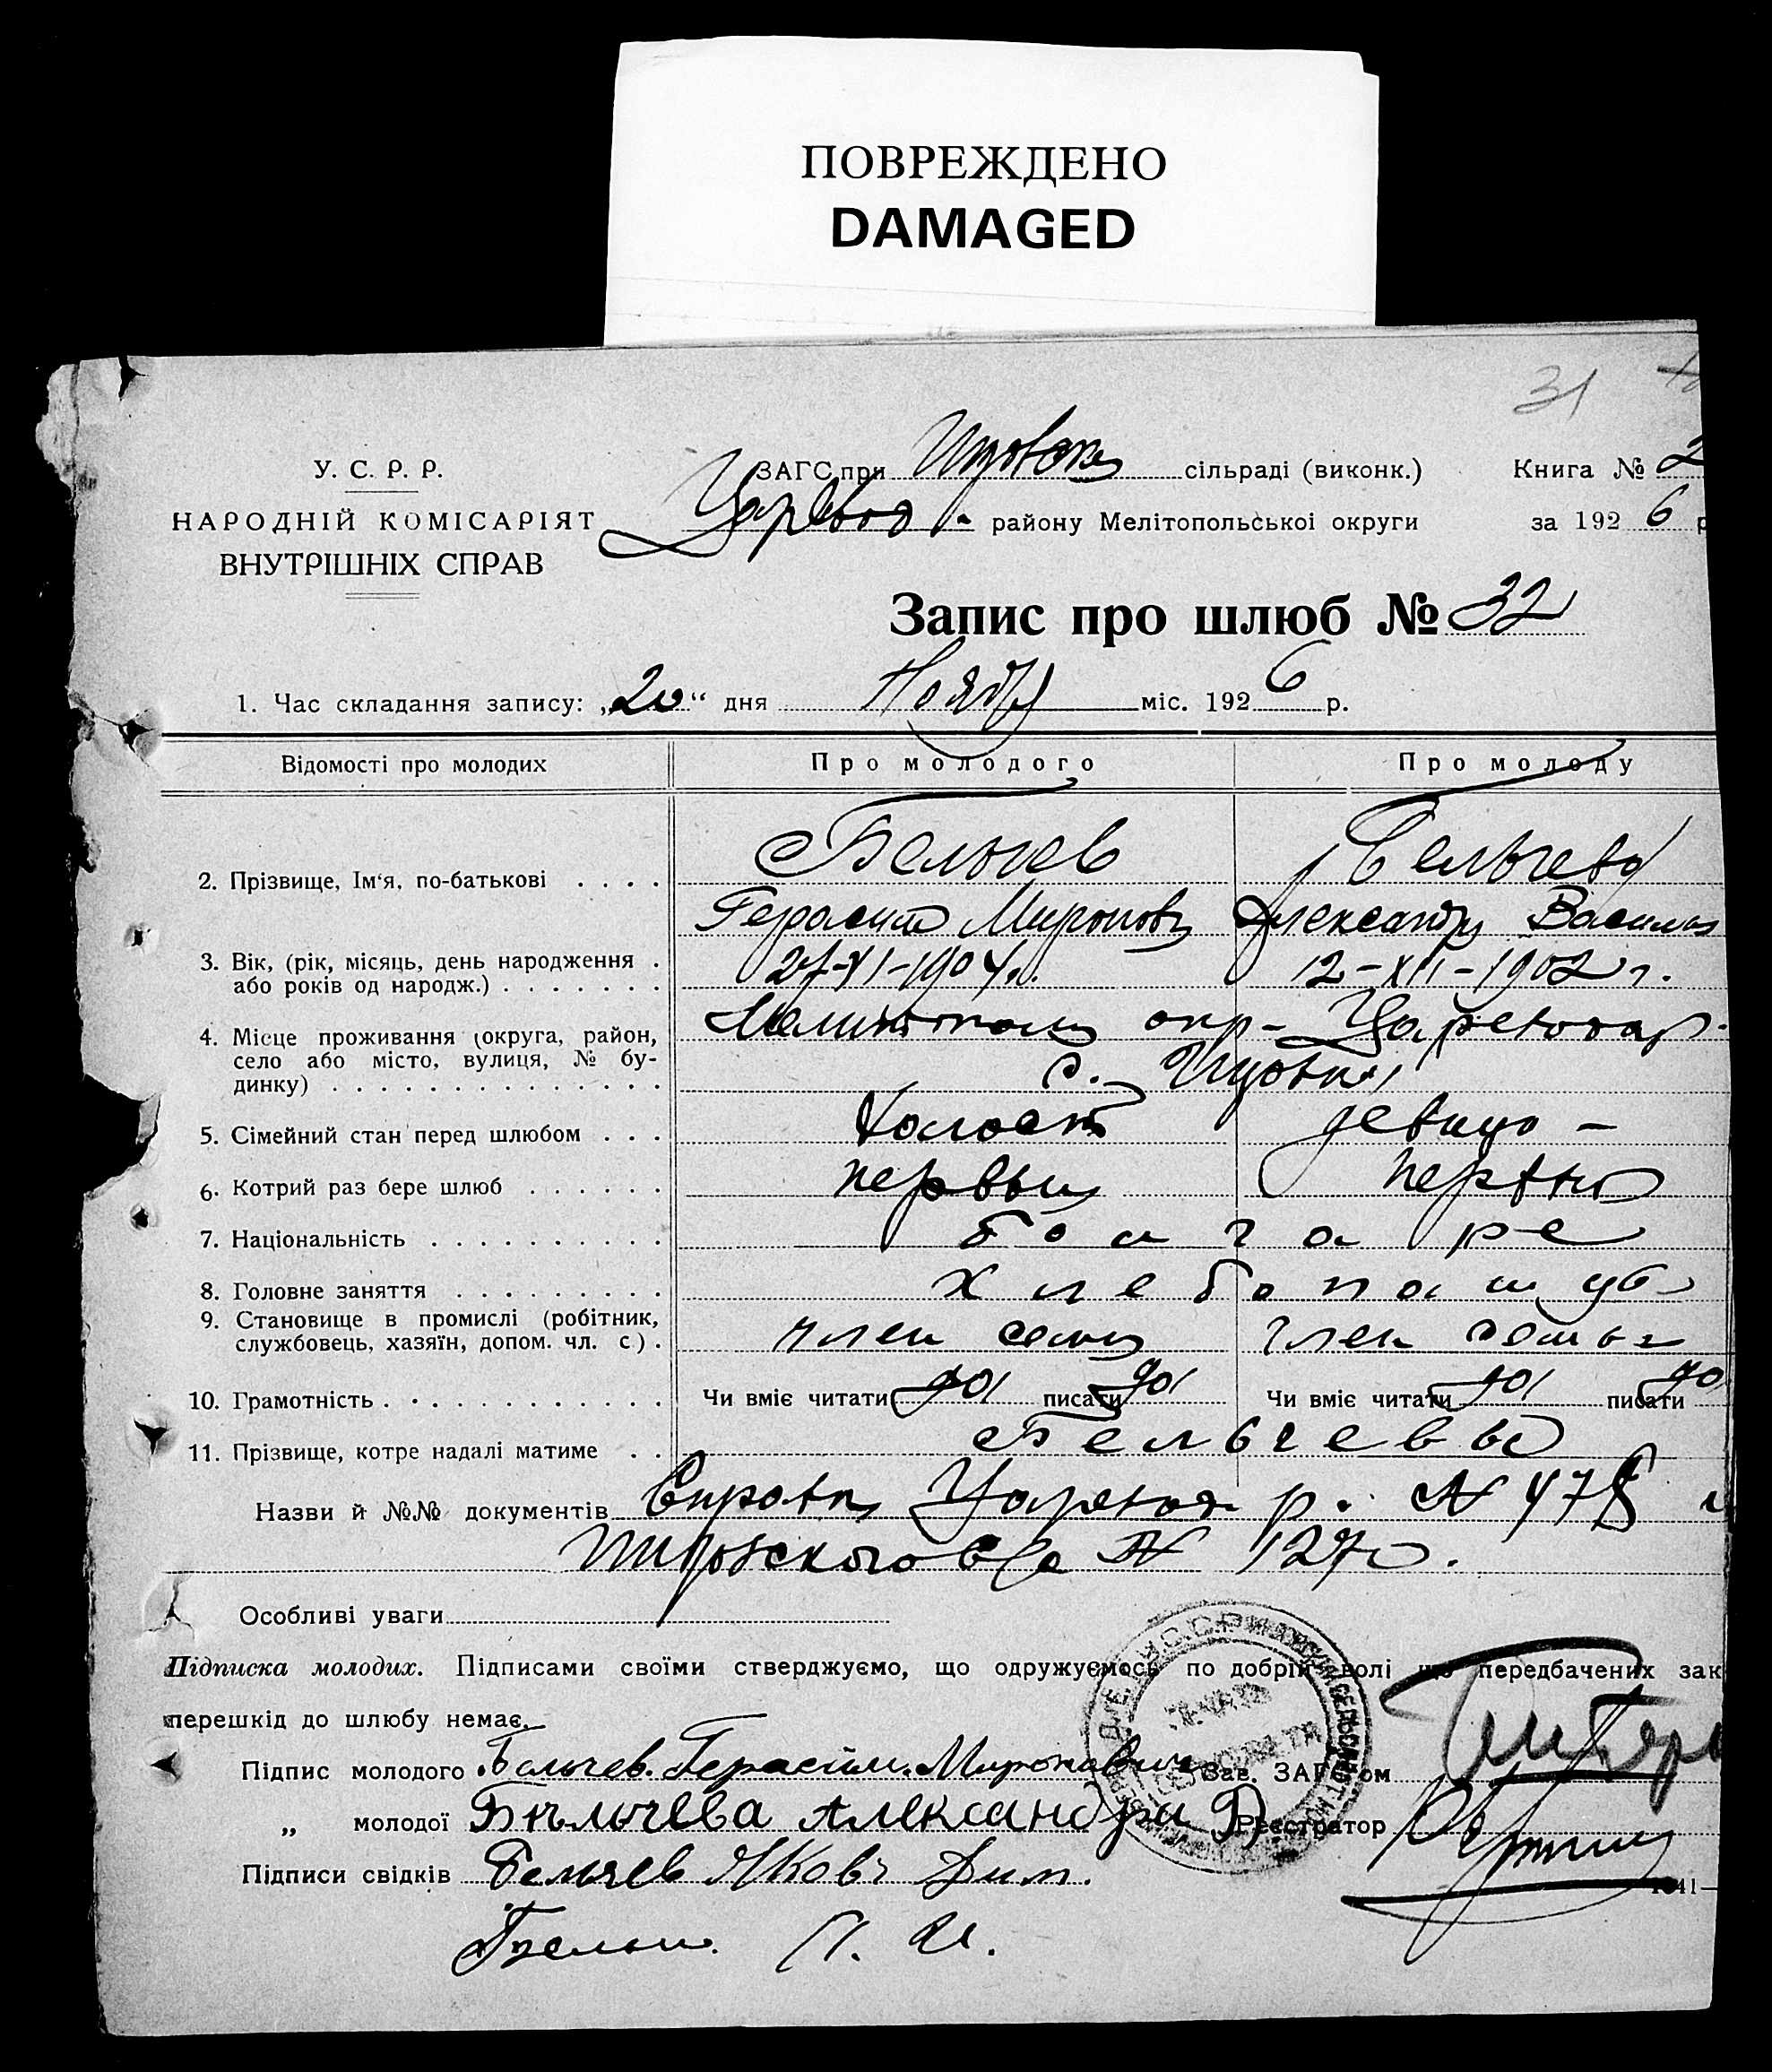 ПОВРЕЖДЕНО
DAMAGED
31
У. С. Р. Р.
НАРОДНІЙ КОМІСАРІЯТ
ВНУТРІШНІХ СПРАВ
ЗАГС при сільраді (виконк.)
Царевод районy Мелітопольської округи
Книга № 2
за 1926 р
Запис про шлюб № 32
1. Час складання запису: „20“ дня Ноября міс. 1926 р.
Відомості про молодих Про молодого Про молоду
2. Прізвище, Ім'я, по-батькові . . . . Бельчев Бельчева
Герасим Миронов Александра Василь
3. Вік, (рік, місяць, день народження .
або років од народж.) . . . . . . . 27-XI-1904 г. 12-XII-1902 г.
4. Місце проживання (округа, район,
село або місто, вулиця, № бу-
динку) . . . . . . . . . . . . . .
Мелитополь окр-
с.
5. Сімейний стан перед шлюбом . . . холост девица -
6. Котрий раз бере шлюб . . . . . . первый первый
7. Національність . . . . . . . . . . болгаре
8. Головне заняття . . . . . . . . . хлебопашцы
9. Становище в промислі (робітник,
службовець, хазяїн, допом. чл. с.) . член семьи член семьи
10. Грамотність . . . . . . . . . . . . Чи вміє читати да писати да Чи вміє читати да писати да
11. Прізвище, котре надалі матиме . . Бельчевы
Назви й №№ документів Справки р. № 478 и
№ 1270.
Особливі уваги
Підписка молодих. Підписами своїми стверджуємо, що одружуємось по добрій волі що передбачених зак
перешкід до шлюбу немає.
Підпис молодого Бельчев. Герасим. Миронович Зав. ЗАГС'ом
„ молодої Бѣльчева Александра В. Реєстратор
Підписи свідків Бельчев Яковъ Дим.
1041—
П. И.